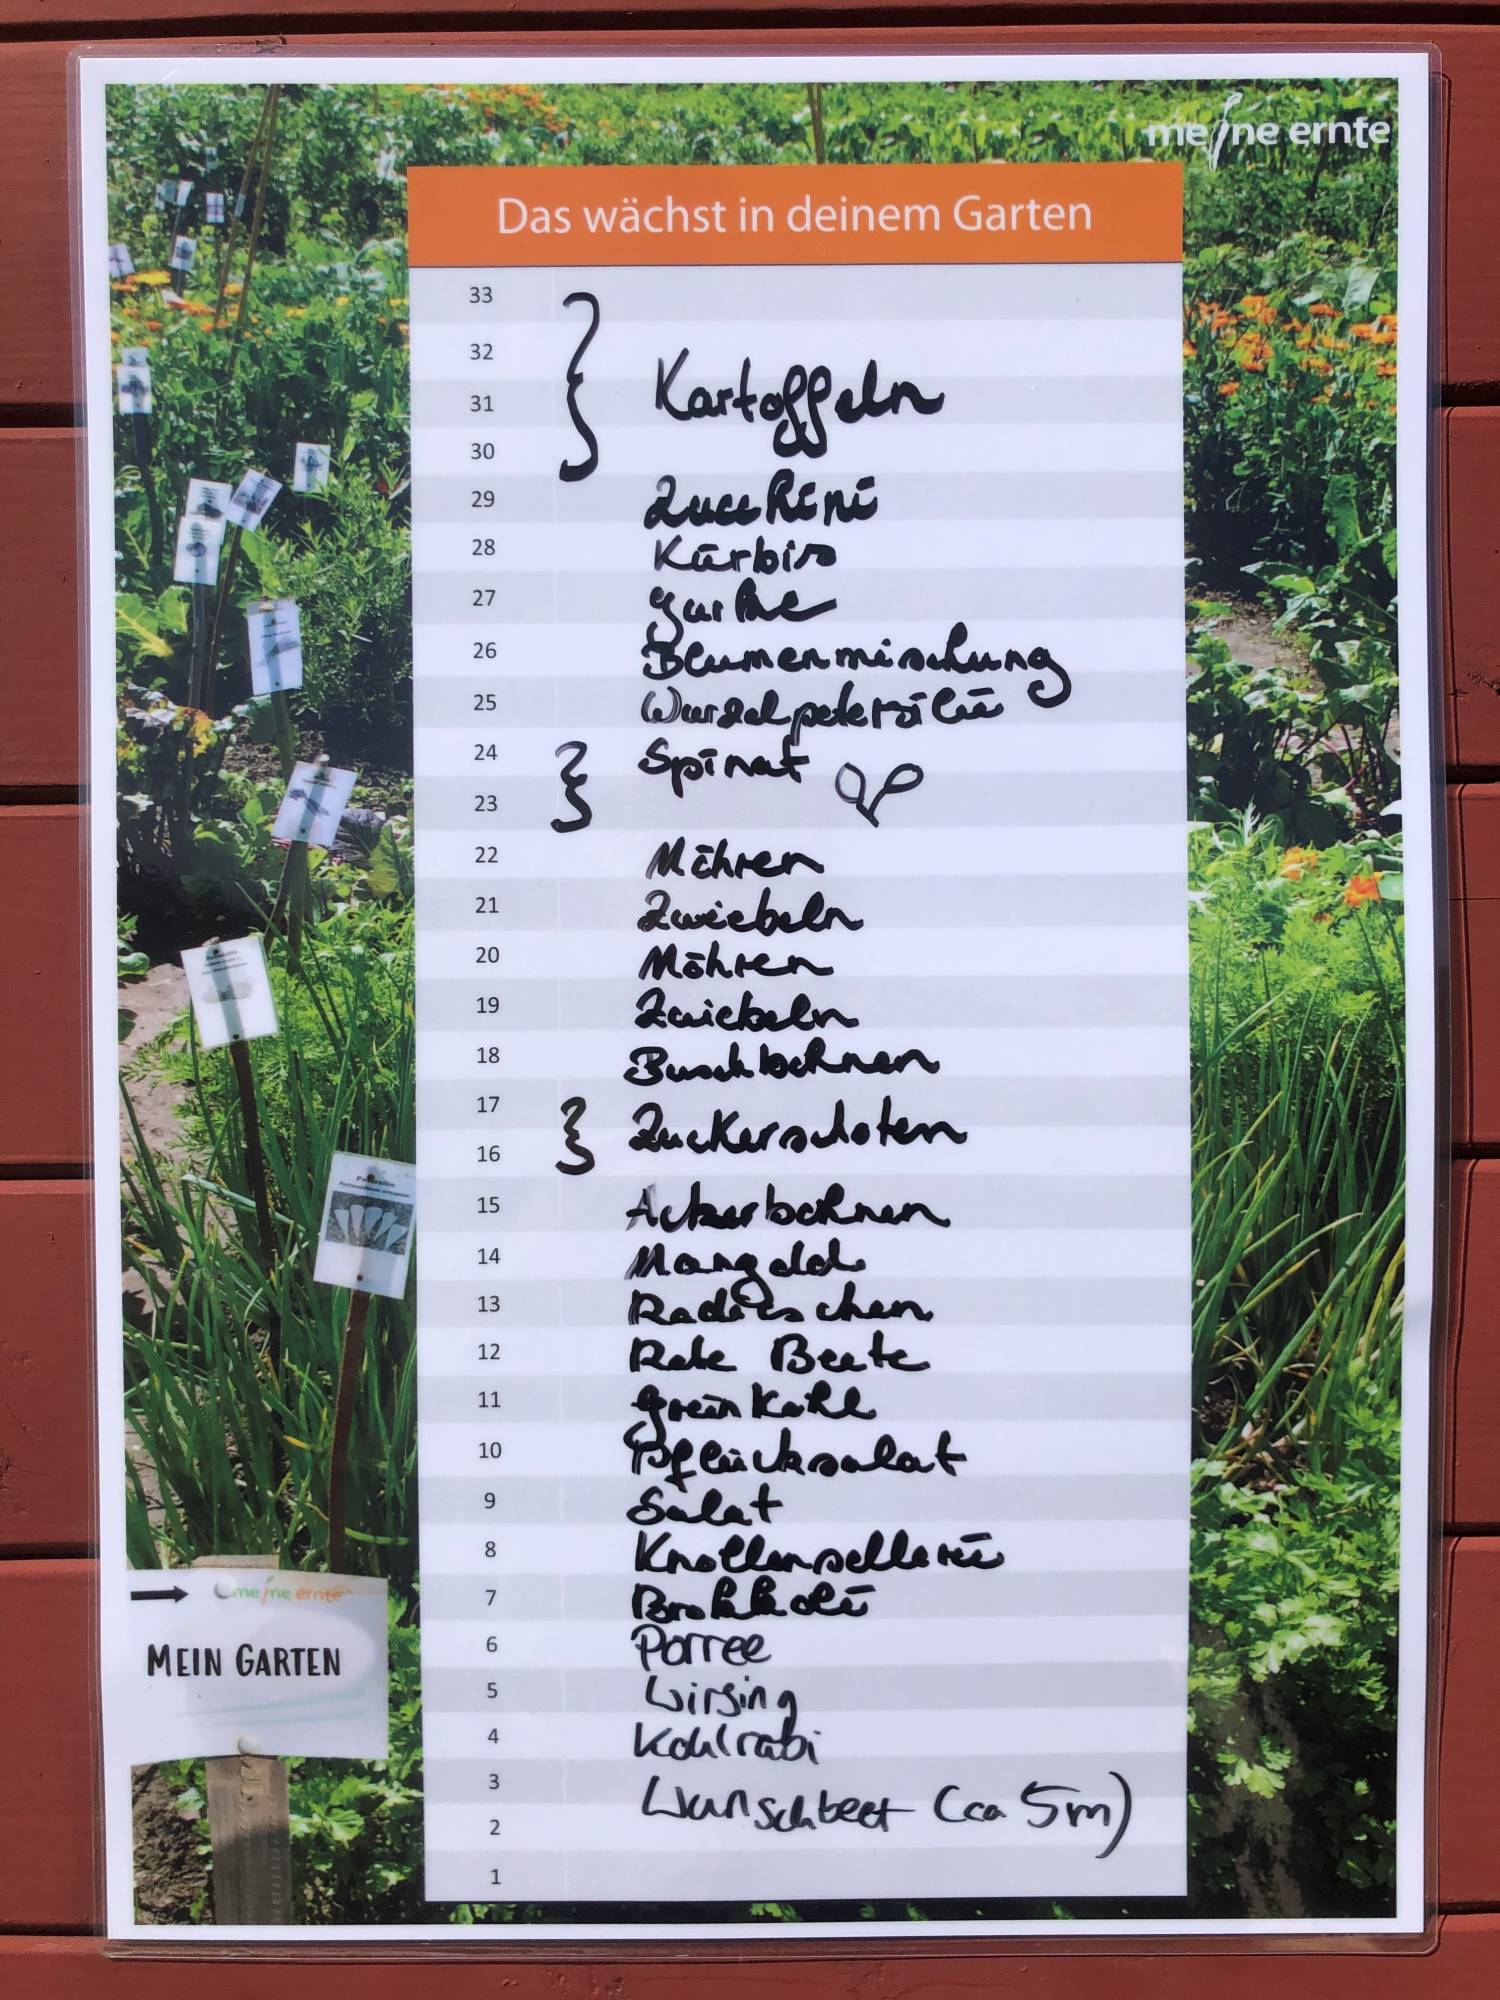 meine ernte
Das wächst in deinem Garten
33
32
31 Kartoffeln
30
29 Zucchini
28 Kürbis
27 Gurke
26 Blumenmischung
25 Wurzelpetersilie
24 Spinat
23
22 Möhren
21 Zwiebeln
20 Möhren
19 Zwiebeln
18 Buschbohnen
17 Zuckerschoten
16
15 Ackerbohnen
14 Mangold
13 Radieschen
12 Rote Beete
11 Grünkohl
10 Pflücksalat
9 Salat
8 Knollensellerie
7 Brokkoli
6 Porree
5 Wirsing
4 Kohlrabi
3 Wunschbeet (ca 5m)
2
1
meine ernte
MEIN GARTEN
Petersilie